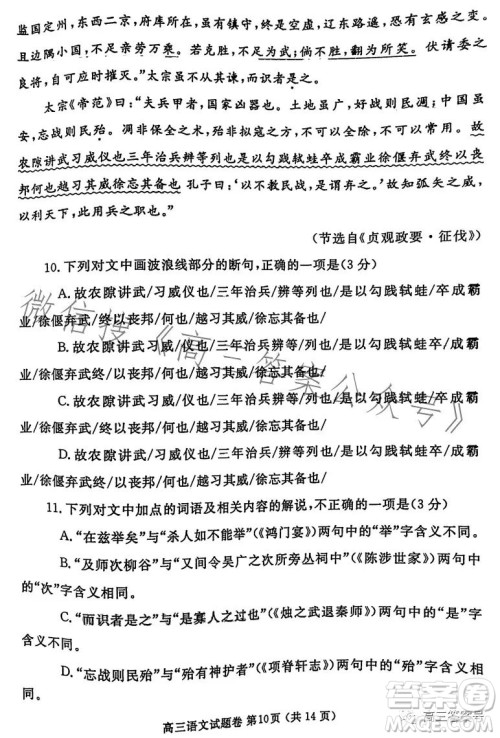 监国定州，东西二京，府库所在，虽有镇守，终是空虚，辽东路遥，恐有玄感之变。且
边隅小国，不足亲劳万乘。若克胜，不足为武；倘不胜，翻为所笑。伏请委之
良将，自可应时摧灭。”太宗虽不从其谏，而识者是之。
太宗《帝范》曰：“夫兵甲者，国家凶器也。土地虽广，好战则民凋；中国虽
安，忘战则民殆。凋非保全之术，殆非拟寇之方，不可以全除，不可以常用。故
故农隙讲武习威仪也三年治兵辨等列也是以勾践轼蛙卒成霸业徐偃弃武终以丧
邦何也越习其威徐忘其备也 孔子曰：‘以不教民战，是谓弃之。’故知弧矢之威，
以利天下，此用兵之职也。”
（节选自《贞观政要·征伐》）
10.下列对文中画波浪线部分的断句，正确的一项是（3 分）
A.故农隙讲武/习威仪也/三年治兵/辨等列也/是以勾践轼蛙/卒成霸
业/徐偃弃武终/以丧邦/何也/越习其威/徐忘其备也/
B.故农隙讲武习威/仪也/三年治兵/辨等列也/是以勾践轼蛙/卒成霸
业/徐偃弃武/终以丧邦/何也/越习其威/徐忘其备也/
C.故农隙讲武/习威仪也/三年治兵/辨等列也/是以勾践轼蛙/卒成霸
业/徐偃弃武/终以丧邦/何也/越习其威/徐忘其备也/
D.故农隙讲武习威/仪也/三年治兵/辨等列也/是以勾践轼蛙/卒成霸
业/徐偃弃武终/以丧邦/何也/越习其威/徐忘其备也/
11.下列对文中加点的词语及相关内容的解说，不正确的一项是（3 分）
A.“在兹举矣”与“杀人如不能举”（《鸿门宴》）两句中的“举”字含义不同。
B.“及师次柳谷”与“又间令吴广之次所旁丛祠中”（《陈涉世家》）两句中
的“次”字含义相同。
C.“而识者是之”与“是寡人之过也”（《烛之武退秦师》）两句中的“是”字
含义不同。
D.“忘战则民殆”与“殆有神护者”（《项脊轩志》）两句中的“殆”字含义
相同。
高三语文试题卷 第10页（共 14 页）
微信搜《高三答案公众号》
答案圈
高三答案号
MXQE.COM